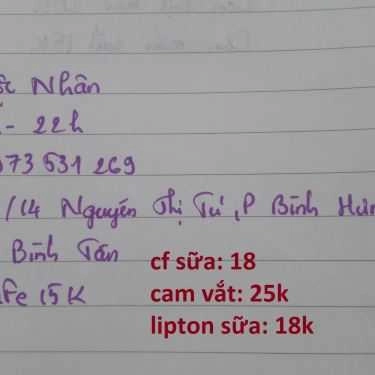 Nhân
- 22h
073 531 269
/14 Nguyễn Thị Tú, P Bình Hưn
Bình Tân
cf sữa: 18
Fe 15K
cam vắt: 25k
lipton sữa: 18k